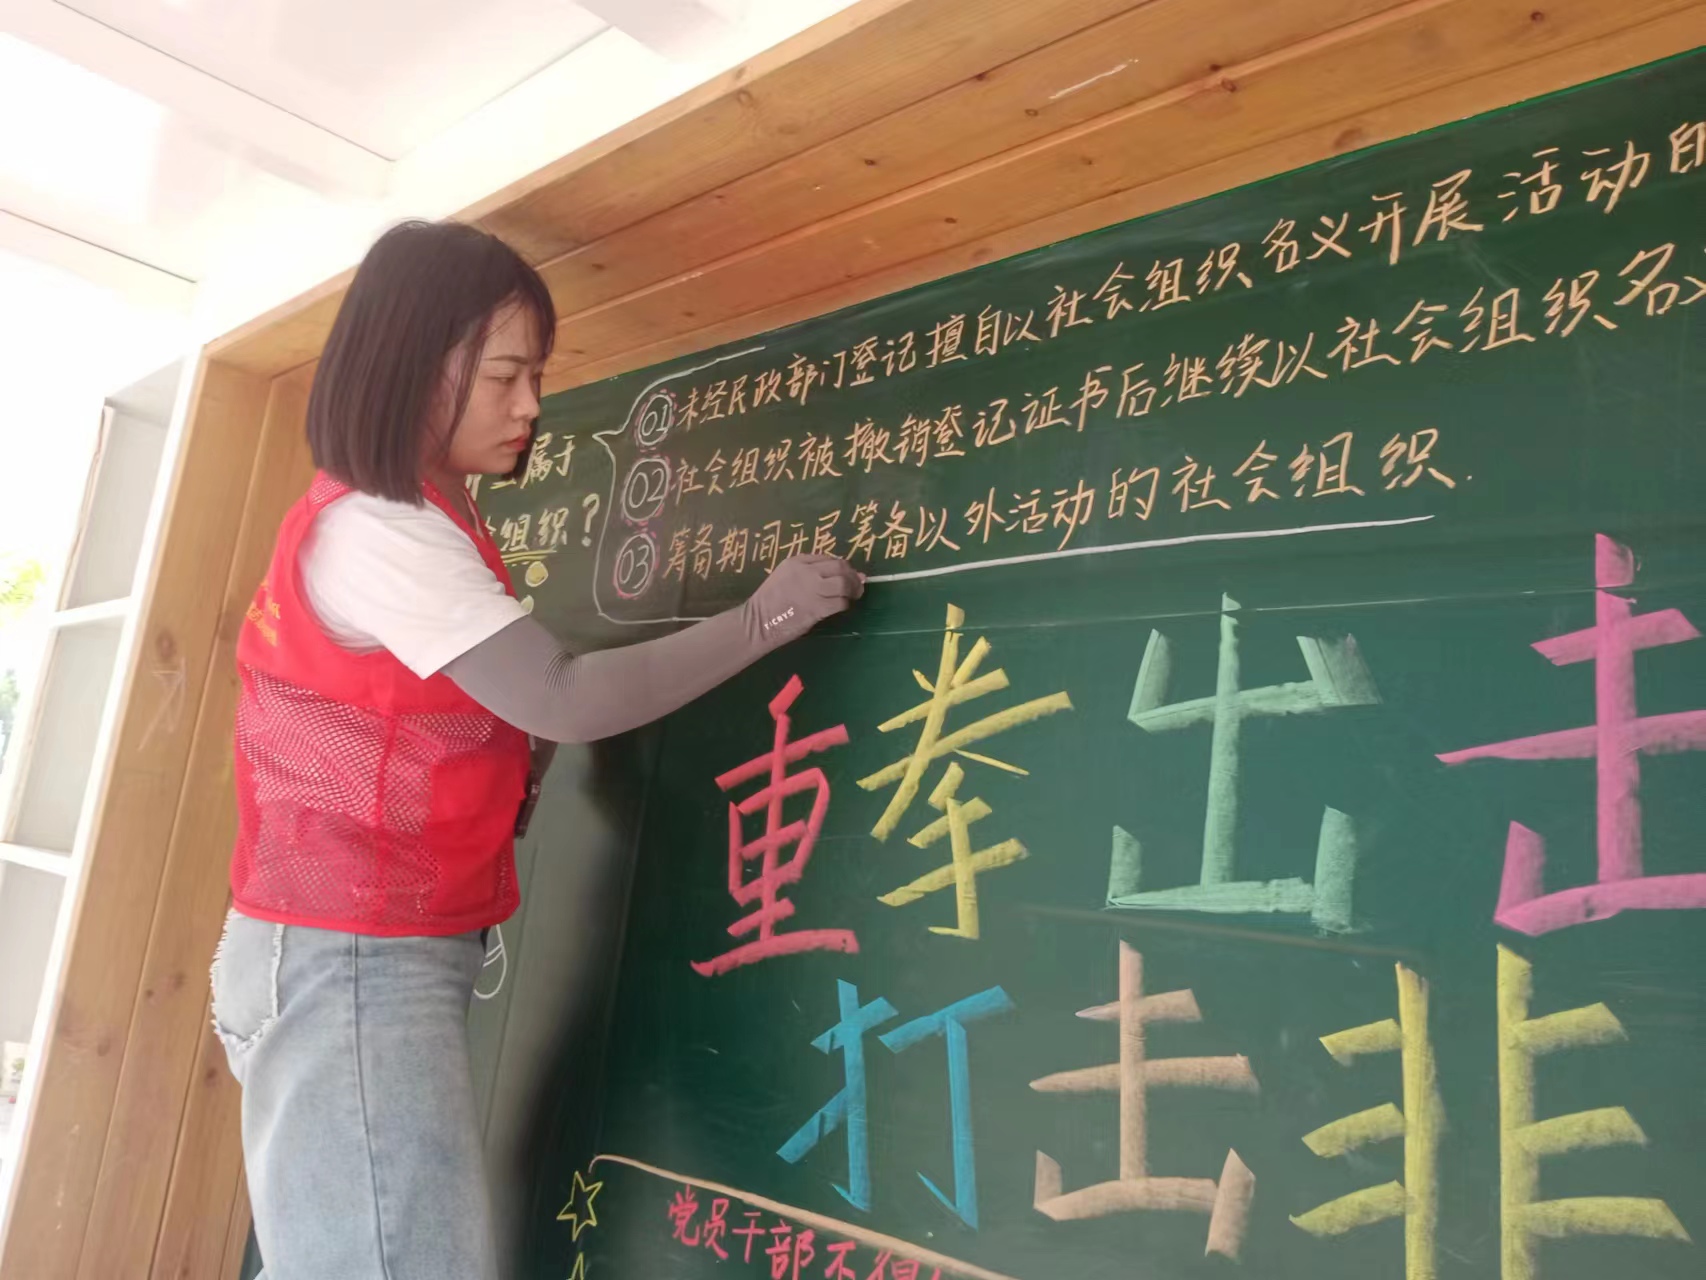 属于
组织？
01 未经民政部门登记擅自以社会组织名义开展活动的
02 社会组织被撤销登记证书后继续以社会组织名义
03 筹备期间开展筹备以外活动的社会组织.
重拳出击
打击非
党员干部不得